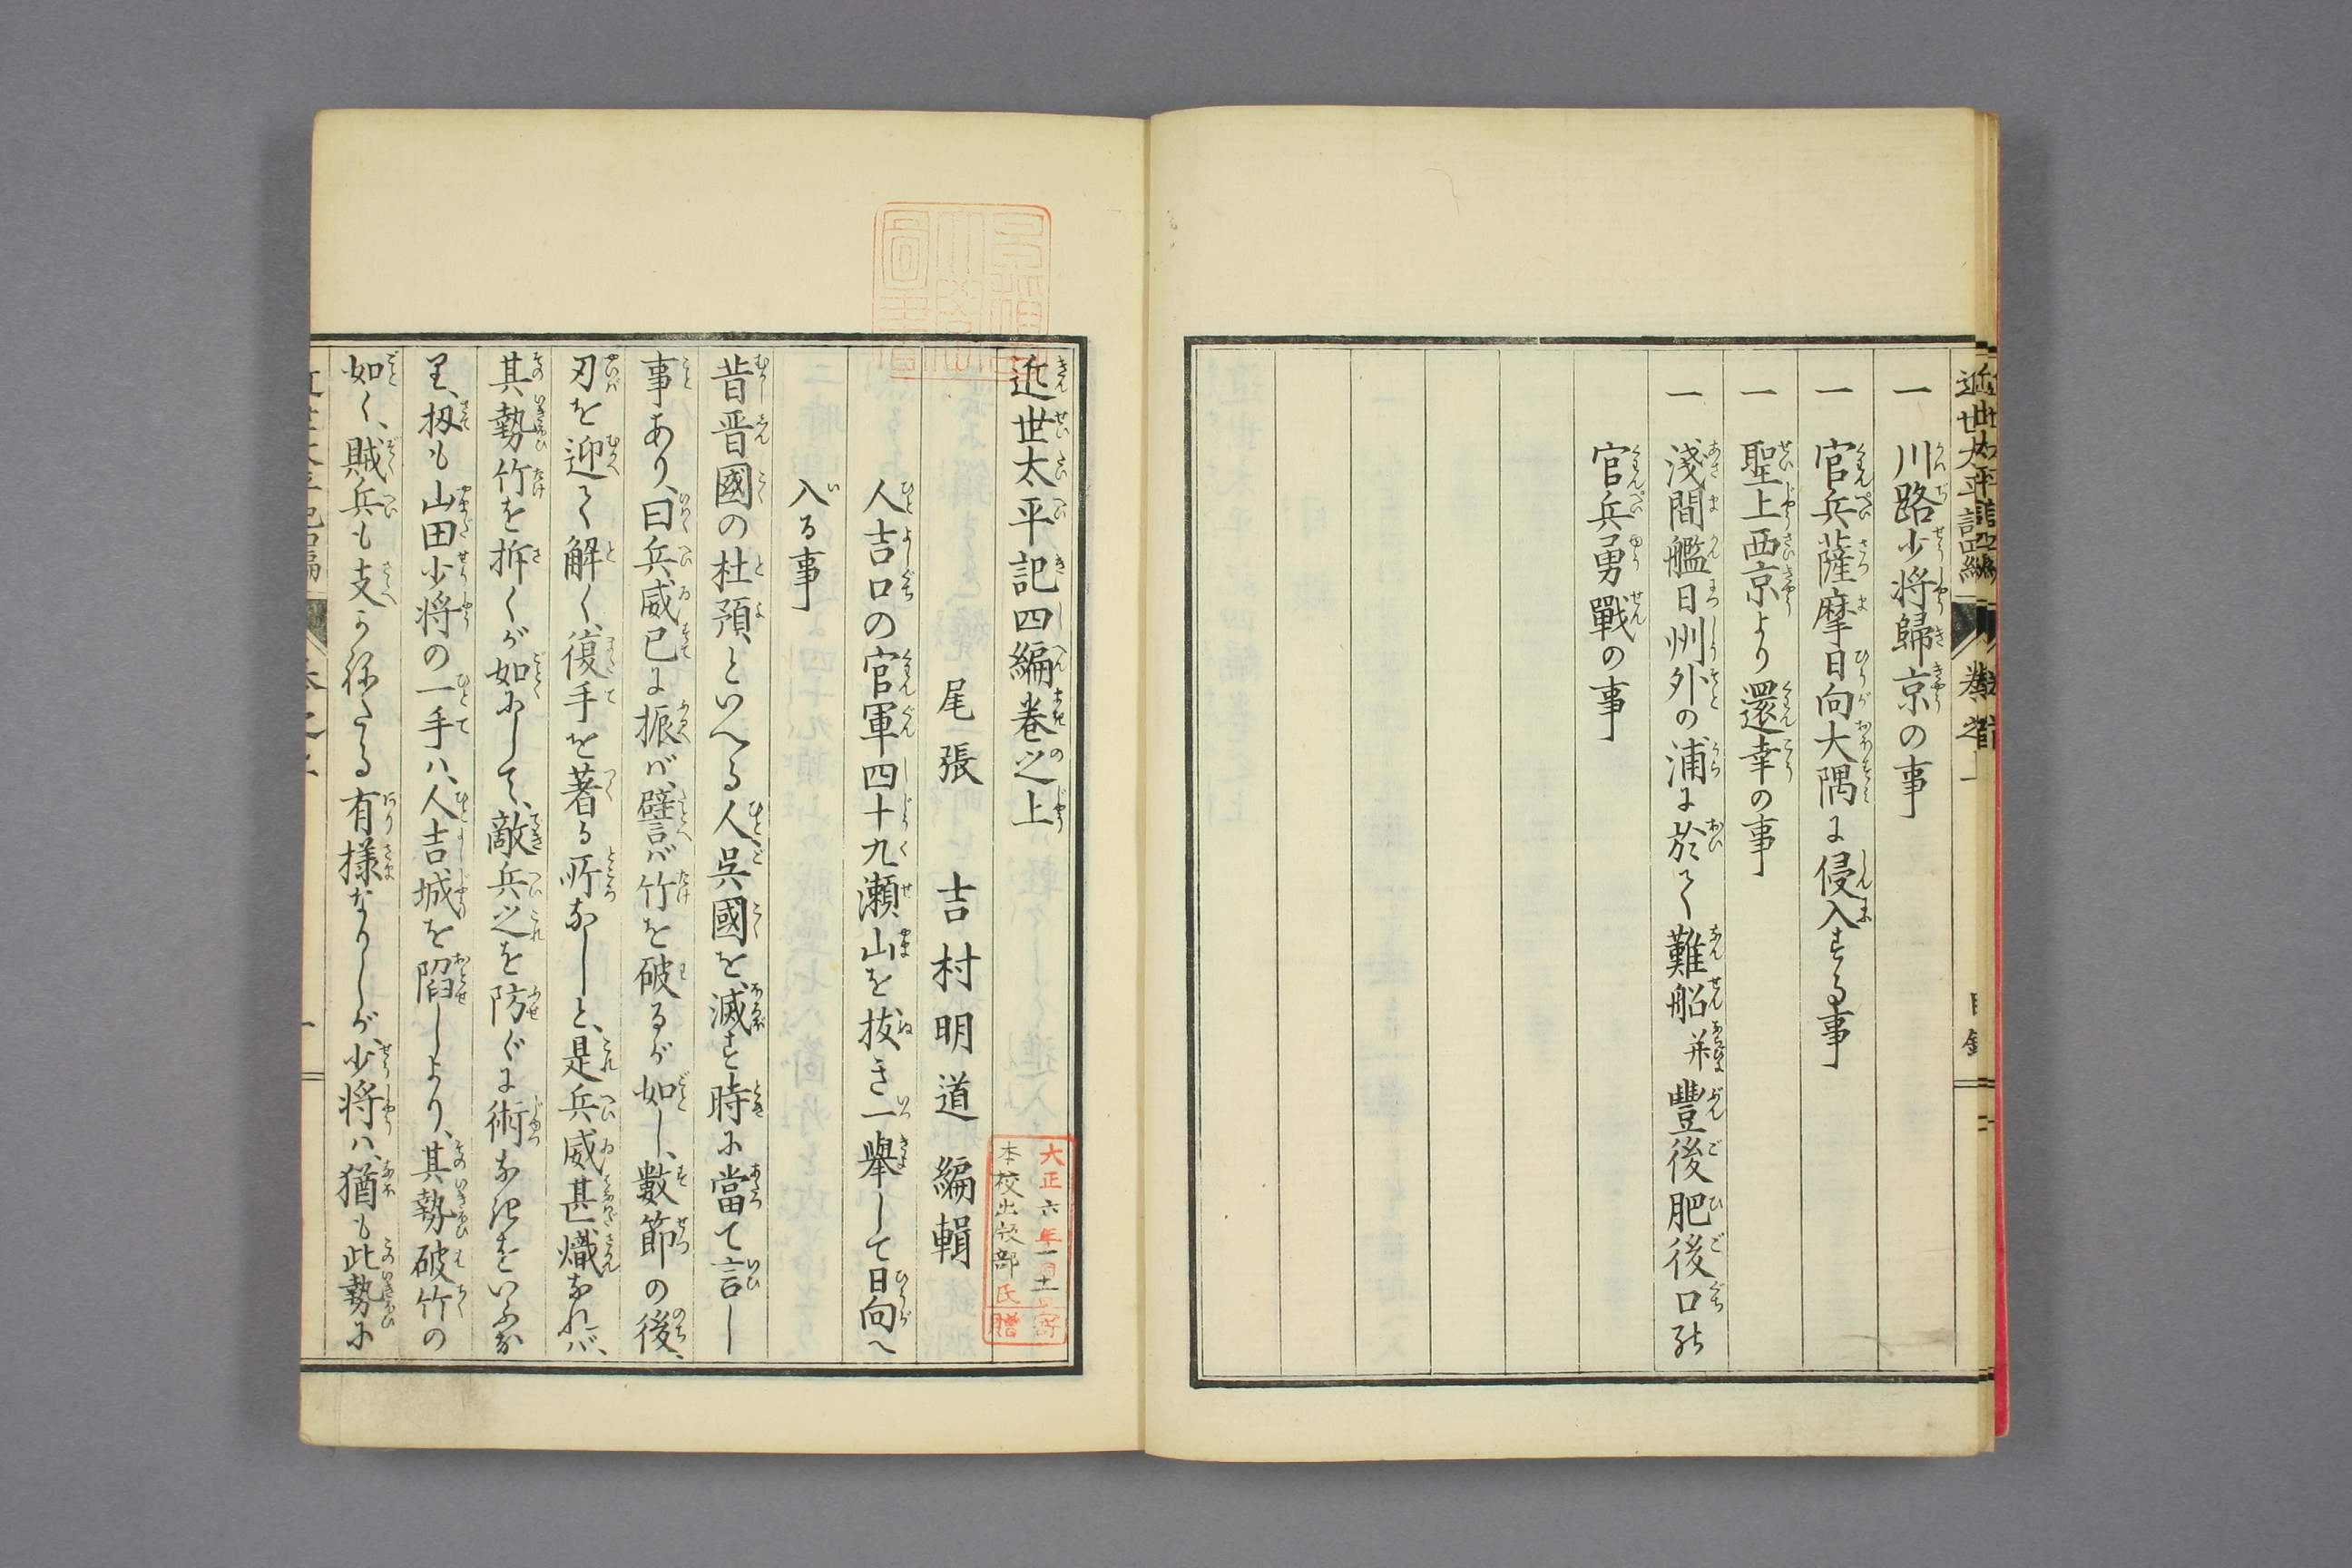 一 川路少将歸京の事
一 官兵薩摩日向大隅に侵入する事
一 聖上西京より還幸の事
一 淺間艦日州外の浦に於て難船并豐後肥後口の
官兵勇戰の事
近世太平記四編巻之上
尾張 吉村明道編輯
人吉口の官軍四十九瀬山を抜き一擧して日向へ
入る事
昔晋國の杜預、といへる人呉國を、滅す時に當て言し
事あり、曰兵威已に振へば、譬ば竹を破るが如し、數節の後、
刃を迎て解く、復手を著る所なしと、是兵威甚熾なれバ、
其勢竹を拆くが如にして、敵兵之を防ぐに術なきをいふな
り、扨も山田少将の一手ハ、人吉城を陷しより、其勢破竹の
如く、賊兵も支かねたる有様なりしが、少将ハ、猶も此勢に
大正六年
本校出版部氏
寄贈